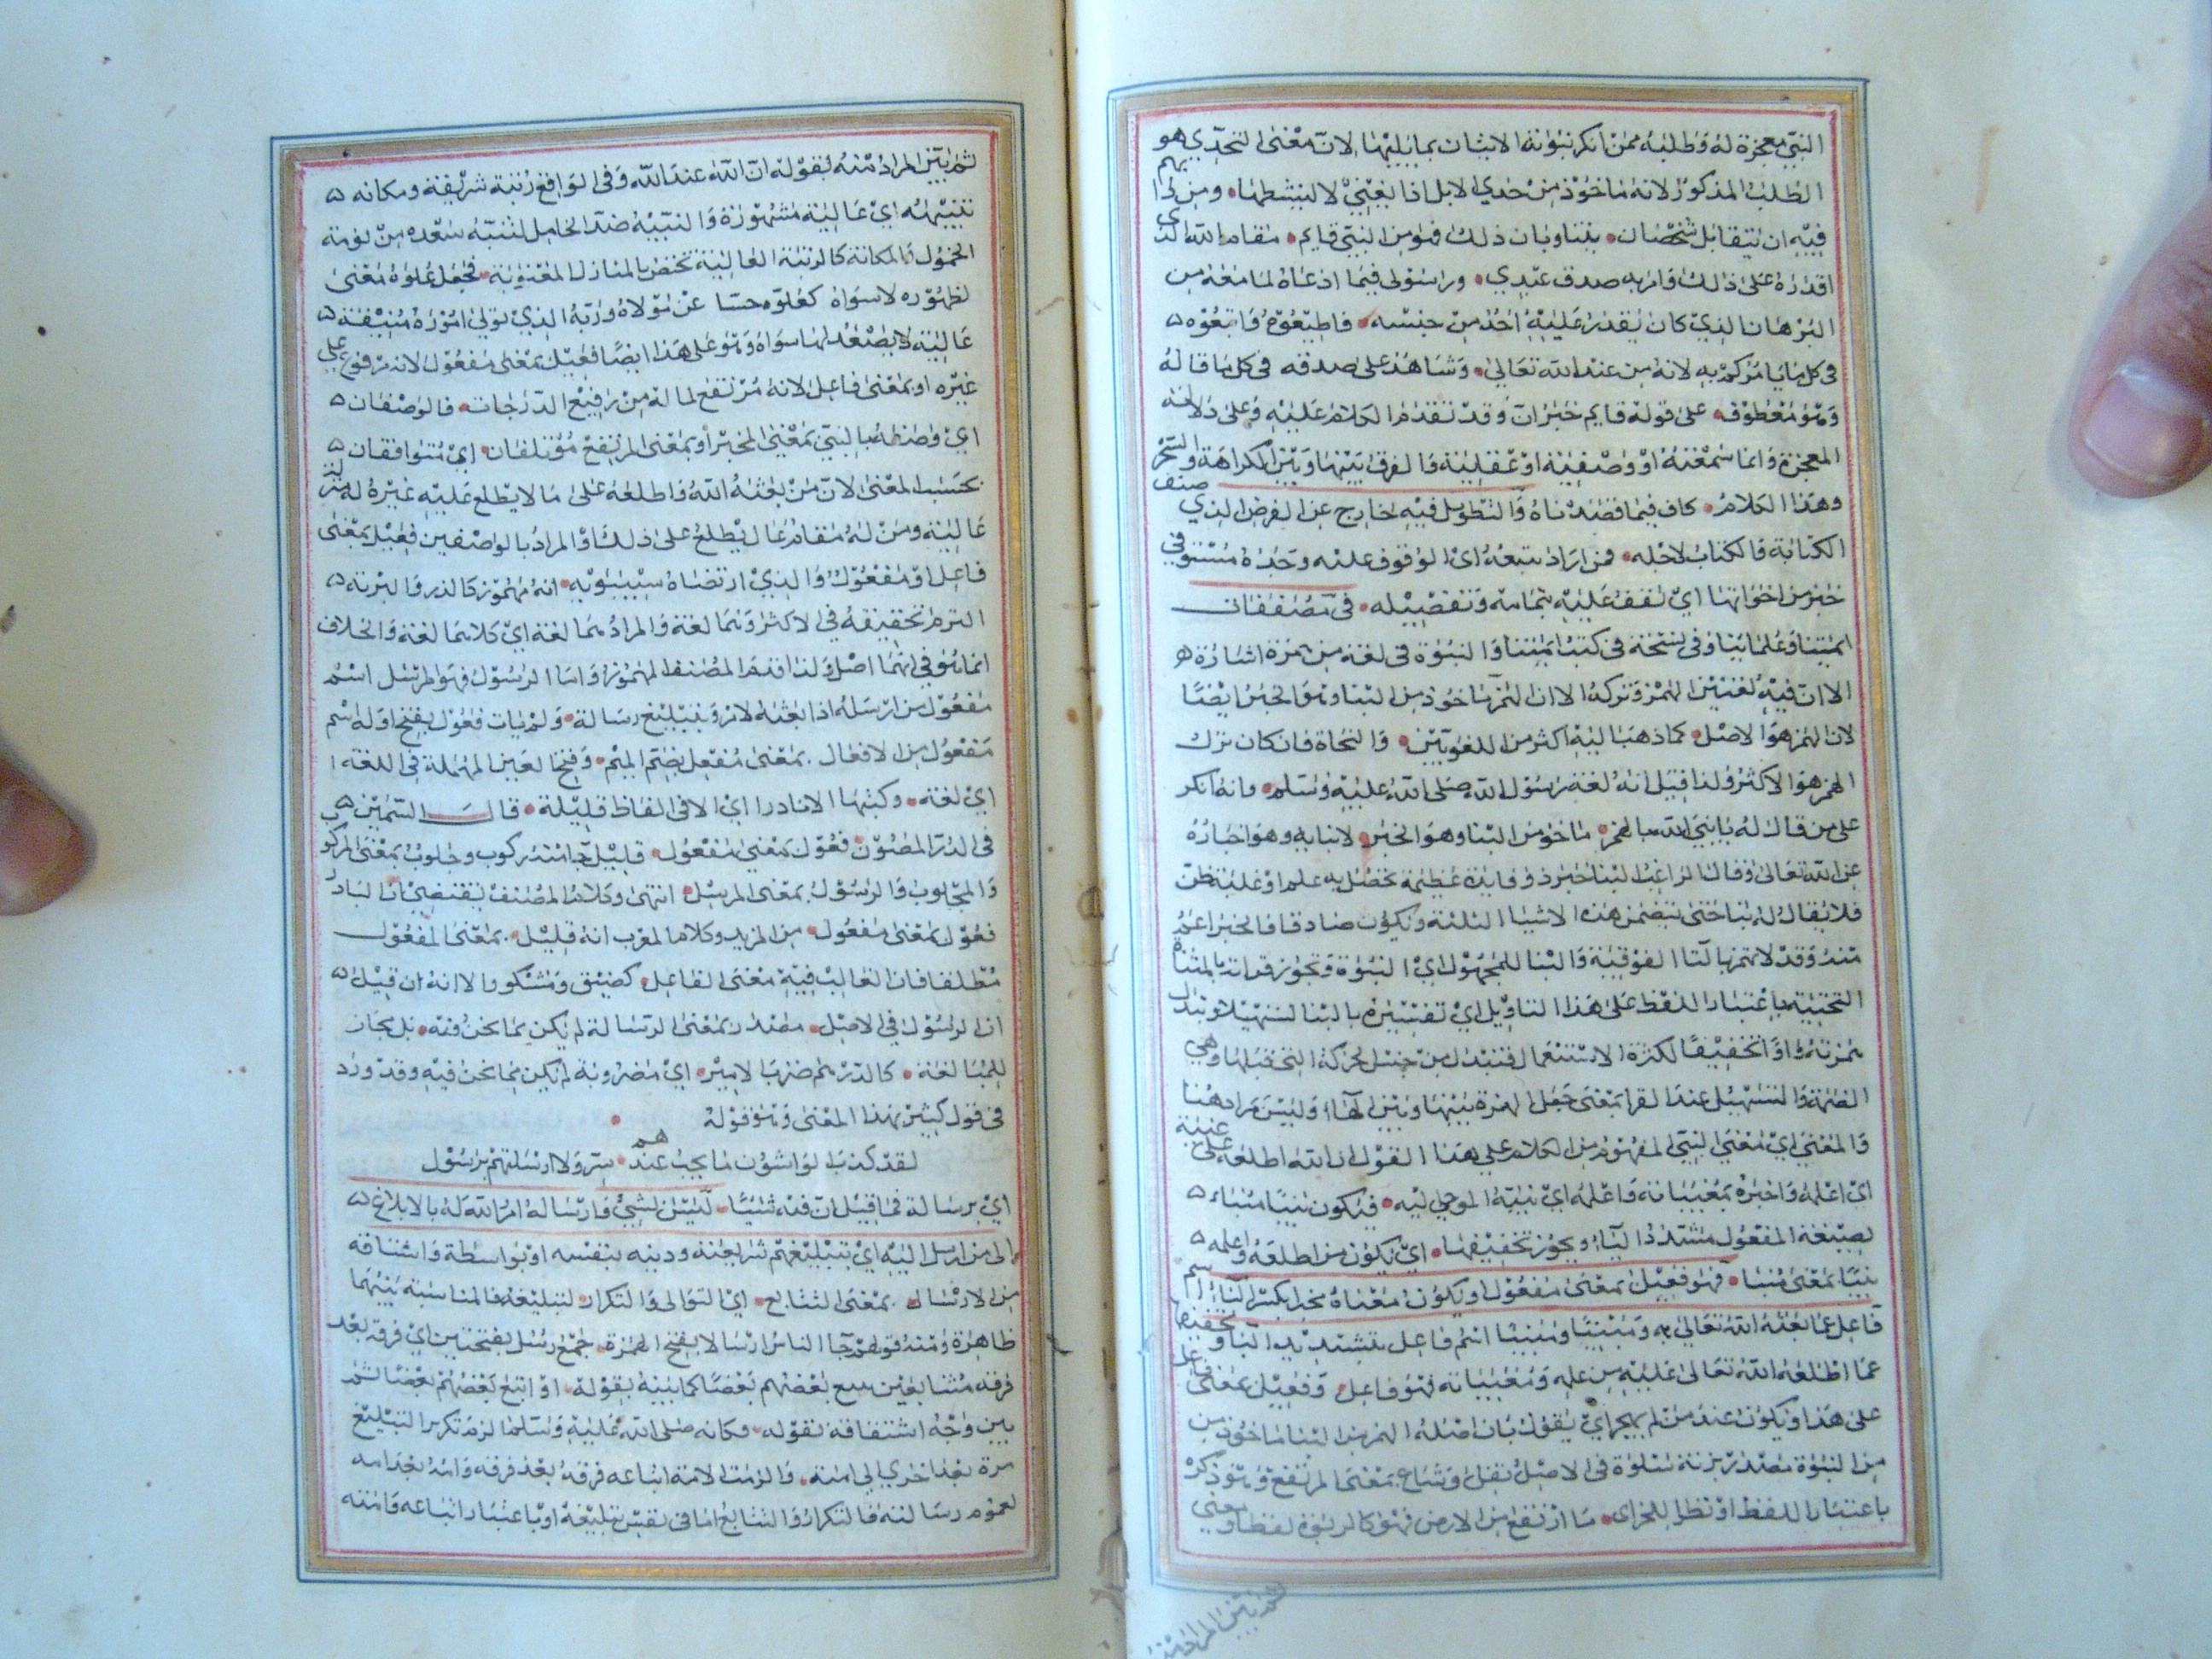 النبي معجزة له وطلبه ممن انكر نبوته الاتيان بما يليها لان معنى التحدي هو
الطلب المذكور لانه ماخوذ من حدي الابل اذا لينشطها ومن
فيه ان يتقابل شخصان ذلك من النبي قايم مقام الله
اقداره على ذلك وامر به صدق عبدي ورسولي فيما ادعاه لما معه من
البرهان الذي كان يقدر عليه احد من جنسه فاطيعوه واتبعوه
في كل ما يامركم به لانه من عند الله تعالى وشاهد على صدقه في كل ما قاله
وهو معطوف على قوله قايم خبر ان وقد تقدم الكلام عليه وعلى
المعجزة وانها سمعية او وصفية او عقلية والفرق بينها وبين الكرامة والسحر
وهذا الكلام كاف فيما قصدناه والتطويل فيه خارج عن الغرض الذي صنف
الكتابة والكتاب لاجله فمن اراد تتبعه اي الوقوف عليه وجده مستوفي
خبر من اخواتها اي نقف عليه بتمامه وتفصيله في مصنفات
ايمتنا وعلماينا وفي نسخة في كتب ايمتنا والنبوة في لغة من همزة اشارة
الا ان فيه لغتين الهمز وتركه الا ان الهمز ماخوذ من النبا وهو الخبر ايضا
لان الهمز هو الاصل كما ذهب اليه اكثر من اللغويين والنحاة فان كان ترك
الهمز هو الاكثر ولذا قيل انه لغة رسول الله صلى الله عليه وسلم وانه انكر
على من قال له يا نبي الله بالهمز ماخوذ من النبا وهو الخبر لانبايه وهو اخباره
عن الله تعالى وقال الراغب النبا خبر ذو فايدة عظيمة يحصل به علم او غلبة ظن
فلا يقال له نبا حتى يتضمن هذه الاشيا الثلثة ويكون صادقا فالخبر اعم
منه وقد لا تهمز بالتا الفوقية والبنا للمجهول اي النبوة وتجوز قراته بالمثناة
التحتية باعتبار اللفظ على هذا التاويل اي تفسيره بالنبا تسهيلا وتبدل
همزته واوا تخفيفا لكثرة الاستعمال فتبدل من جنس الحركة التي قبلها وهي
الضمة والتسهيل عند القرا بمعنى جعل الهمزة بينها وبين الهاء وليس مراده هنا
والمعنى اي معنى النبي المفهوم من الكلام على هذا القول ان الله اطلعه على غيبه
اي اعلمه واخبره بمغيباته واعلمه اي نبيه الموحى اليه فيكون نبيا منباء
بصيغة المفعول مشدد الباء ويجوز تخفيفها اي يكون من اطلعه واعلمه
نبيا بمعنى منبا فهو فعيل بمعنى مفعول او يكون معناه مخبرا بكسر الباء اسم
فاعل عما بعثه الله تعالى به ومنبيا ومنبئا اسم فاعل بتشديد الباو تخفيفها
عما اطلعه الله تعالى عليه من علمه ومغيباته فهو فاعل وفعيل بمعنى فاعل
على هذا ويكون عند من لم يهمز اي يقول بان اصله الهمز من النبا ماخوذ من
من النبوة مصدر بزنة سلوة في الاصل نقل وشاع بمعنى المرتفع وهو ذكر
باعتبار اللفظ او نظرا للخبر اي ما ارتفع من الارض فهو كالربوة لفظا ومعنى
ثم بين المراد منه
ثم بين المراد منه بقوله ان الله عند الله وفي الواقع رتبة شريفة ومكانه
نبيهه اي عالية مشهورة والنبيه ضد الخامل لتنبه سعده من نومة
الخمول والمكانة كالرتبة العالية تختص بالمنازل المعنوية فجعل علوه معنى
لظهوره لا سواه كعلوه حسا عن مولاه وربه الذي تولى اموره منيفة
عالية لا يصعد لها سواه وهو على هذا ايضا فعيل بمعنى مفعول لانه مرفوع على
غيره او بمعنى فاعل لانه مرتفع لما له من رفيع الدرجات فالوصفان
اي وصفه بالنبي بمعنى المخبر او بمعنى المرتفع مؤتلفان اي متوافقان
بحسب المعنى لان من بعثه الله واطلعه على ما لا يطلع عليه غيره له
عالية ومن له مقام عال يطلع على ذلك او المراد بالوصفين فعيل بمعنى
فاعل او مفعول والذي ارتضاه سيبويه انه مهموز كالذر والبرية
التزم تخفيفه في الاكثر وهما لغة والمراد هما لغة اي كلاهما لغة والخلاف
انما هو في انهما اصل ولذا قدم المصنف المهموز واما الرسول فهو المرسل اسم
مفعول من ارسله اذا بعثه لامر وتبليغ رسالة ولم يات فعول بفتح اوله اسم
مفعول من الافعال بمعنى مفعل بضم الميم وفتح العين المهملة في اللغة
اي لغة وكتبها الا نادرا اي الا في الفاظ قليلة قال السمين
في الدر المصون فعول بمعنى مفعول قليل جا منه ركوب وحلوب بمعنى المركوب
والمحلوب والرسول بمعنى المرسل انتهى وكلام المصنف يقتضي ان النادر
فعول بمعنى مفعول من المزيد وكلام المعرب انه قليل بمعنى المفعول
مطلقا فان الغالب فيه معنى الفاعل كضيق ومشكور الا انه ان قيل
ان الرسول في الاصل مصدر بمعنى الرسالة لم يكن مما نحن فيه بل مجاز
للمبالغة كالدرهم ضرب الامير اي مضروبة لم يكن مما نحن فيه وقد ورد
في قول كثير بهذا المعنى وهو قوله
لقد كذب الواشون ما بحت عندهم بسر ولا ارسلتهم برسول
اي برسالة فما قيل ان فيه شيئا ليس بشيء وارساله امر الله له بالابلاغ
الى من ارسل اليه اي بتبليغهم شريعته ودينه بنفسه او بواسطة واشتقاقه
من الارسال بمعنى التتابع اي التوالي والتكرار لتبليغه فالمناسبة بينهما
ظاهرة ومنه قولهم جآ الناس ارسالا بفتح الهمزة جمع رسل بفتحتين اي فرقة بعد
فرقه متتابعين يتبع بعضهم بعضا كما بينه بقوله اذا تبع بعضهم بعضا ثم
بين وجه اشتقاقه بقوله فكانه صلى الله عليه وسلم الزم تكرير التبليغ
مرة بعد اخري الى امته والزمت الامة اتباعه فرقة بعد فرقه وامة بعد امه
لعموم رسالته فالتكرار والتتابع اما في نفس تبليغه او باعتبار اتباعه وامته